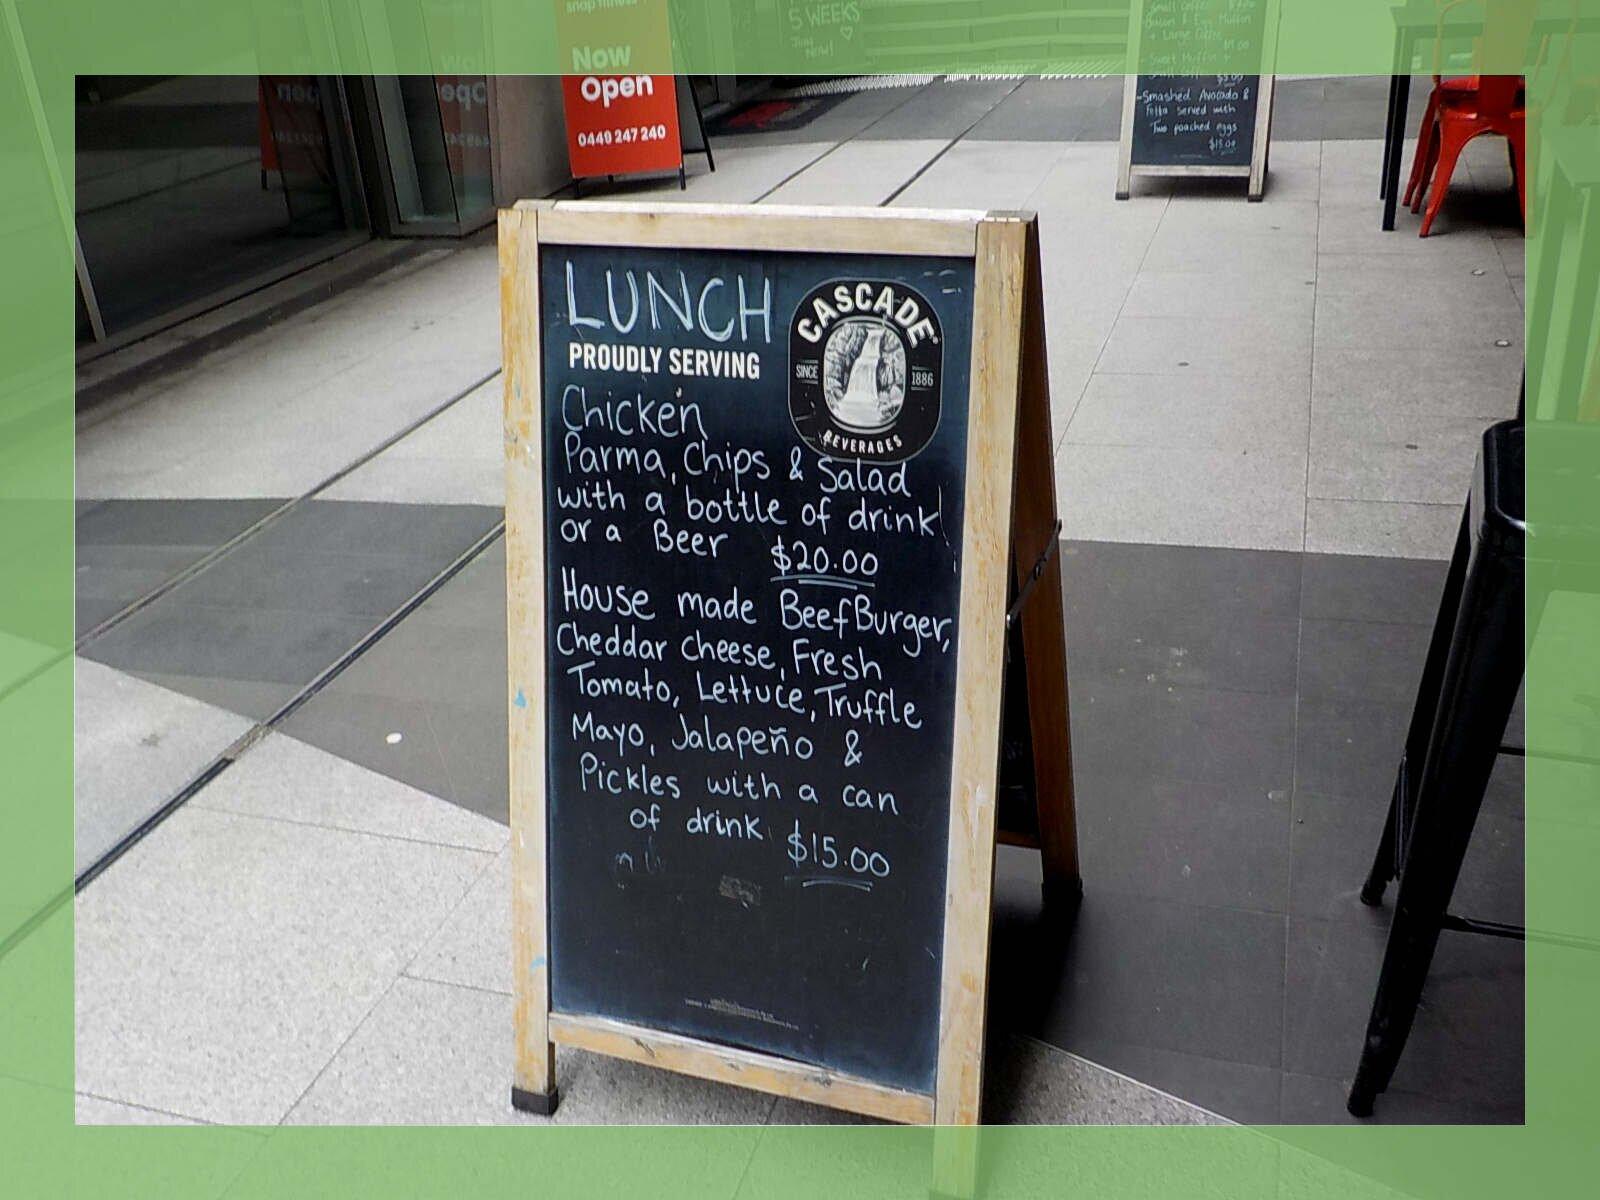 snap fitness
Now
Open
0449 247 240
5 WEEKS
Join
Now!
Small Coffee
Bacon & Egg Muffin
+ Large Coffee
- Sweet Muffin +
$5.00
-Smashed Avocado &
Fetta served with
Two poached eggs
$15.00
LUNCH
PROUDLY SERVING
CASCADE
SINCE 1886
BEVERAGES
Chicken
Parma, Chips & Salad
with a bottle of drink
or a Beer $20.00
House made Beef Burger,
Cheddar cheese, Fresh
Tomato, Lettuce, Truffle
Mayo, Jalapeño &
Pickles with a can
of drink $15.00